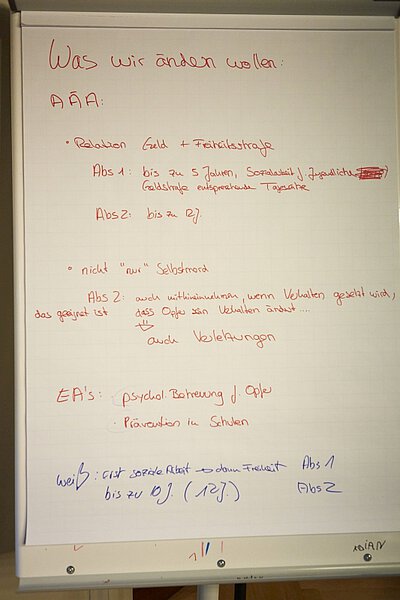 Was wir ändern wollen:
AÄA:
• Relation Geld + Freiheitsstrafe
Abs 1: bis zu 5 Jahren, Sozialarbeit f. Jugendliche
Geldstrafe entsprechende Tagsätze
Abs 2: bis zu 12 J.
• nicht "nur" Selbstmord
Abs 2: auch miteinnehmen, wenn Verhalten gesetzt wird,
das geeignet ist dass Opfer sein Verhalten ändert....
auch Verletzungen
EA's: psychol. Betreuung f. Opfer
· Prävention in Schulen
Weiß: erst soziale Arbeit → dann Freiheit Abs 1
bis zu 10 J. (12 J.) Abs 2